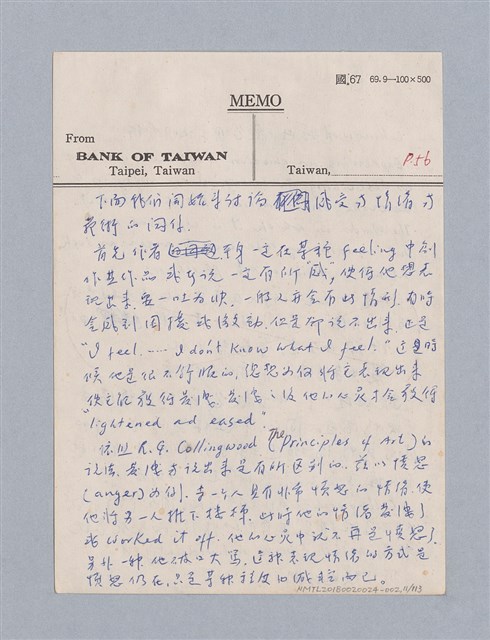 國.67 69.9—100×500
MEMO
From
BANK OF TAIWAN
Taipei, Taiwan
Taiwan,
P56
下面我們開始來討論 感受與情緒與
藝術的關係。
首先作者 本身一定在某種 feeling 中創
作其作品 或者說一定有所"感",使得他想表
現出來,一吐为快。一般人有時
會感到困擾或激動,但是卻說不出來,正是
"I feel …… I don't know what I feel." 這時
候他是很不舒服的,
發洩之後他的心灵才会覺得
"lightened and eased".
依照 R.G. Collingwood (The Principles of Art) 的
說法,發洩與說出來是有所区别的。兹以憤怒
(anger) 为例,當一个人具有非常憤怒的情緒,使
他將另一人推下樓梯,此時他的情緒發洩了
或 worked it off. 他的心灵中就不再是憤怒了。
另外一種他破口大罵,這種表現情緒的方式是
憤怒仍在,只是某種程度的減輕而已。
NMTL20180020024-002,11/113